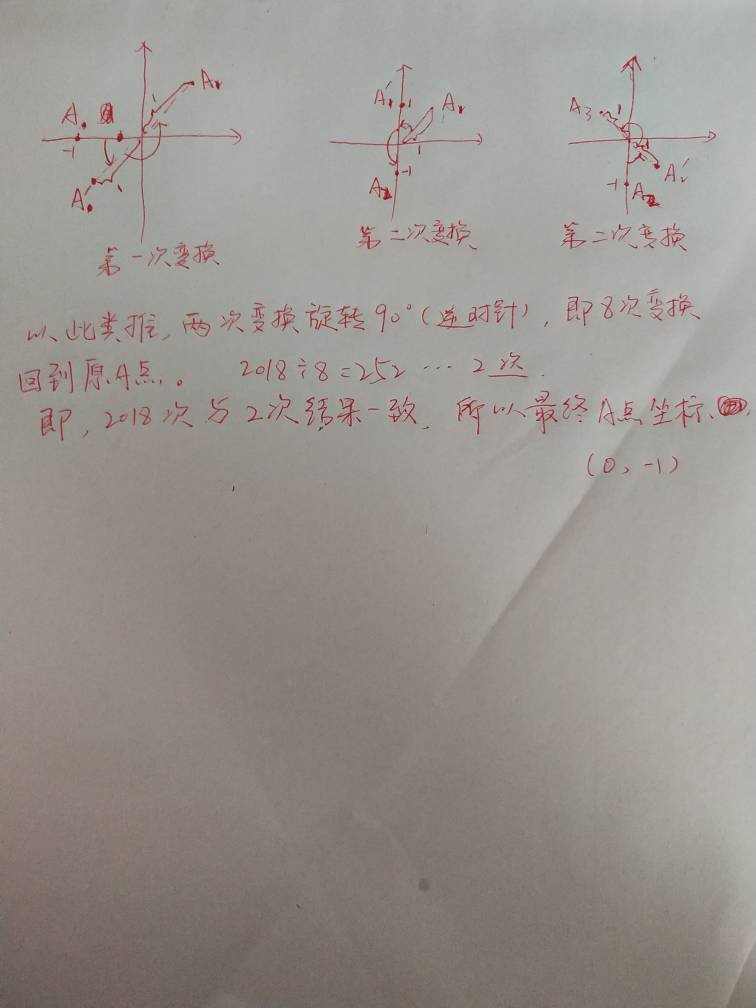 A. A₁ -1 1 1 A'.
A₁' 1 A₁ 1 -1 A₂
A3 1 1 A₂' -1 A₂
第一次变换
第二次变换
第二次变换
以此类推,两次变换旋转90°(逆时针),即8次变换
回到原A点。 2018÷8=252 … 2次.
即,2018次与2次结果一致,所以最终A点坐标、
(0,-1)